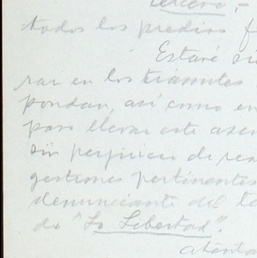 tercero,-
todos los predios f
Estaré si
rar en los trámites
pondan, así como en
para llevar este asun
sin perjuicio de rea
gestiones pertinentes
denunciante del te
do "La Libertad".
Atenta